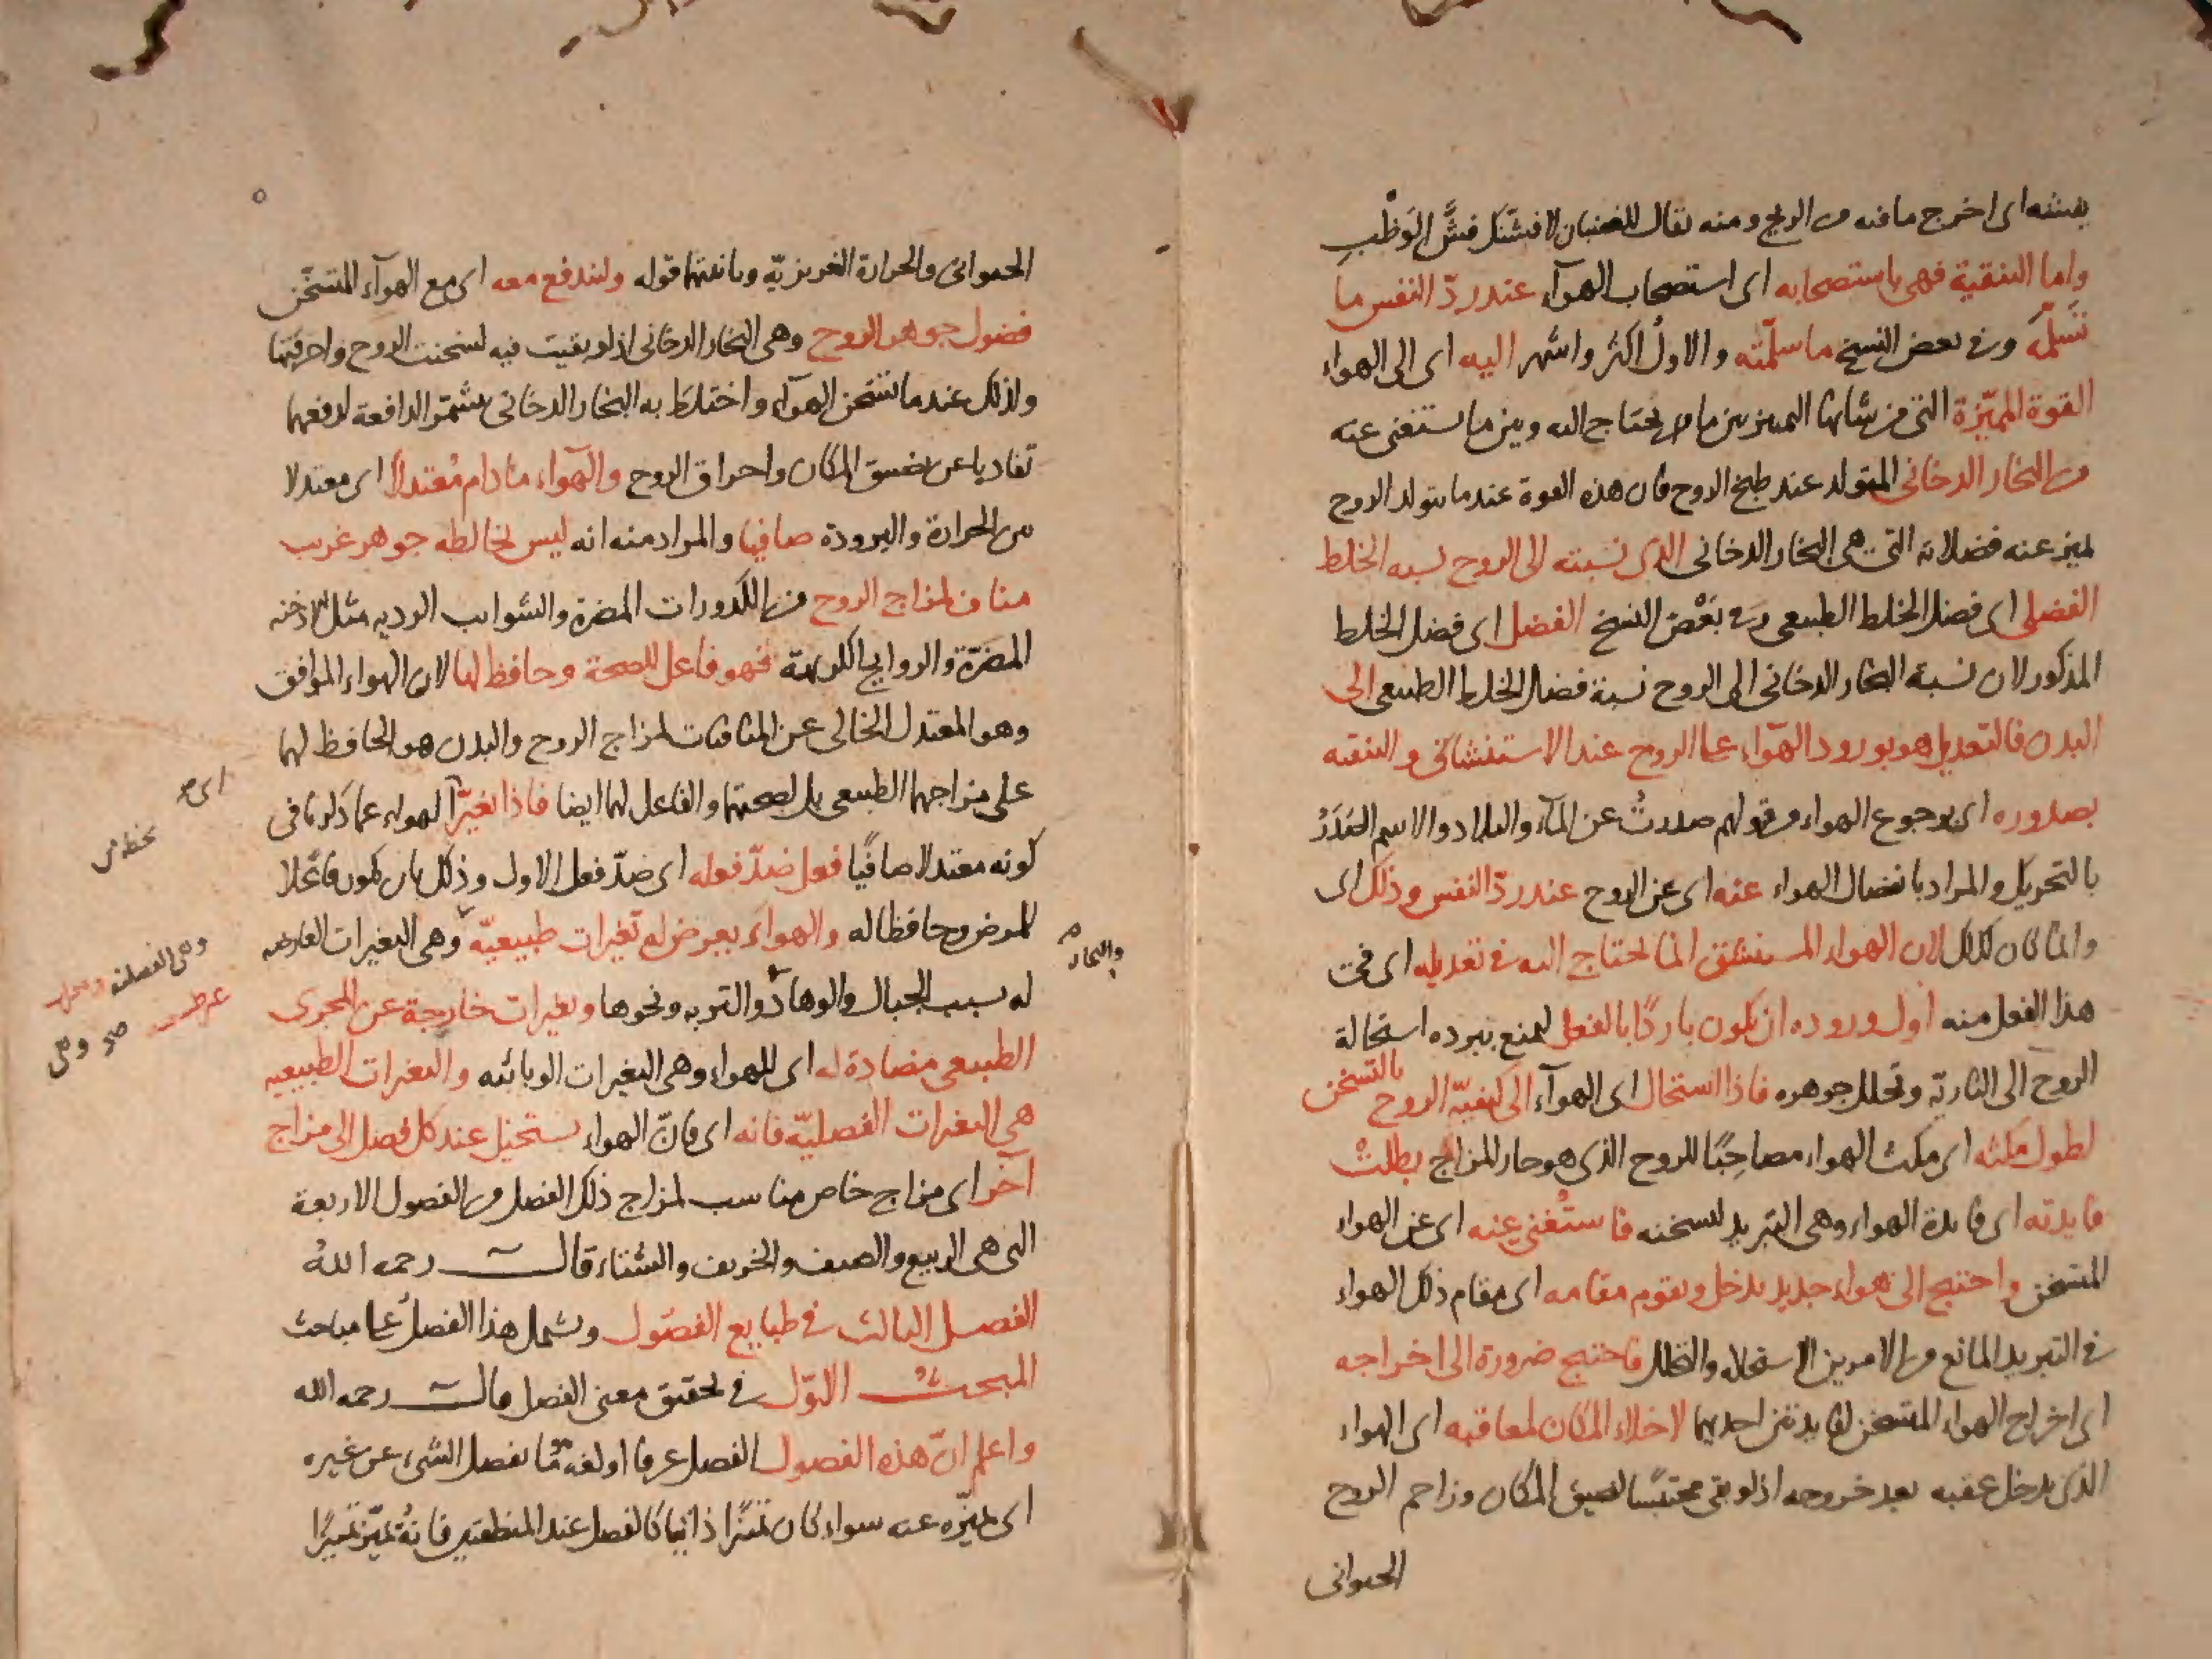 يفشه اى اخرج ما فيه من الريح ومنه يقال للغضبان لافشنك فشَّ الوَطْبِ
واما التنقية فهى باستصحابه اى استصحاب الهوآء عند ردّ النفس ما
تسلمه وفى بعض النسخ ما سلّمته والاول اكثر واشهر اليه اى الى الهواء
القوة المميّزة التى من شانها التمييز بين ما يحتاج اليه وبين ما يستغنى عنه
من البخار الدخانى المتولد عند طبخ الروح فان هذه القوة عندما يتولد الروح
تميز عنه فضلاته التى هى البخار الدخانى الذى نسبته الى الروح نسبه الخلط
الفضلى اى فضل الخلط الطبيعى وفى بَعْض النسخ الفضل اى فضل الخلط
المذكور لان نسبة البخار الدخانى الى الروح نسبة فضل الخلط الطبيعى الى
البدن فالتعديل هو بورود الهوآء على الروح عند الاستنشاق والتنقيه
بصدوره اى برجوع الهواء من قولهم صدرتُ عن المآء والبلاد والاسم الصَدَرُ
بالتحريك والمراد بانفصال الهواء عنه اى عن الروح عند ردّ النفس وذلك اى
وانما كان كذلك لان الهواء المستنشق انما يحتاج اليه فى تعديله اى فى
هذا الفعل منه اول وروده ان يكون باردًا بالفعل ليمنع ببرده استحالة
الروح الى الناريّة وتحلل جوهره فاذا استحال اى الهوآء الى كيفيّة الروح بالتسخن
لطول مكثه اى مكث الهواء مصاحِبًا للروح الذى هو حار المزاج بطلتْ
فايدته اى فايدة الهواء وهى التبريد لتسخنه فاستُغنى عنه اى عن الهواء
المتسخن واحتيج الى هواء جديد يدخل ويقوم مقامه اى مقام ذلك الهواء
فى التبريد المانع من الامرين الاستحاله والتحلل فاحتيج ضرورة الى اخراجه
اى اخراج الهواء المتسخن لفايدتين احديهما لاخلاء المكان لمعاقبه اى الهواء
الذى يدخل عقبه بعد خروجه اذ لو بقى محتبسًا لضيق المكان وزاحم الروح
الحيوانى
الحيوانى والحرارة الغريزيّه وثانيتهما قوله وليندفع معه اى مع الهوآء المتسخّن
فضول جوهر الروح وهى البخار الدخانى اذ لو بقيت فيه لسخنت الروح واحرقتها
ولذلك عندما يتسخن الهوآء واختلط به البخار الدخانى يشمّر الدافعة لدفعهما
تفاديا عن تضييق المكان واحراق الروح والهوآء ما دام مُعتدلاً اى معتدلا
من الحرارة والبرودة صافيا والمراد منه انه ليس يخالطه جوهر غريب
مناف لمزاج الروح من الكدورات المضرة والشوايب الرديه مثل الادخنه
المضرّة والروايح الكريهة فهو فاعل للصحة وحافظ لها لان الهواء الموافق
وهو المعتدل الخالى عن المنافيات لمزاج الروح والبدن هو الحافظ لهما
على مزاجهما الطبيعى بل لصحتهما والفاعل لهما ايضا فاذا تغيرّ الهواء عما ذكرنا فى
كونه معتدلا صافيًا فعل ضدّ فعله اى ضدّ فعل الاول وذلك بان يكون فاعلا
للمرض وحافظا له والهواء يعرض له تغيرات طبيعيّه وهى التغيرات العارضه
له بسبب الجبال والوهاد والتربه ونحوها وتغيرات خارجة عن المجرى
الطبيعى مضادة له اى للهواء وهى التغيرات الوبائيه والتغيرات الطبيعيه
هى التغيرات الفصليّه فانه اى فانّ الهواء يستحيل عند كل فصل الى مزاج
آخر اى مزاج خاص مناسب لمزاج ذلك الفصل من الفصول الاربعة
التى هى الربيع والصيف والخريف والشتاء قال رحمه اللهُ
الفصل الثالث فى طبايع الفصول ويشمل هذا الفصل على مباحث
المبحث الاوّل فى تحقيق معنى الفصل قال رحمه الله
واعلم انّ هذه الفصول الفصل عرفا ولغة ما يفصل الشىء عن غيره
اى يميّزه عنه سواء كان تميّزا ذاتيا كالفصل عند المنطقيين فانهُ يميّز تمييزًا
والبحار